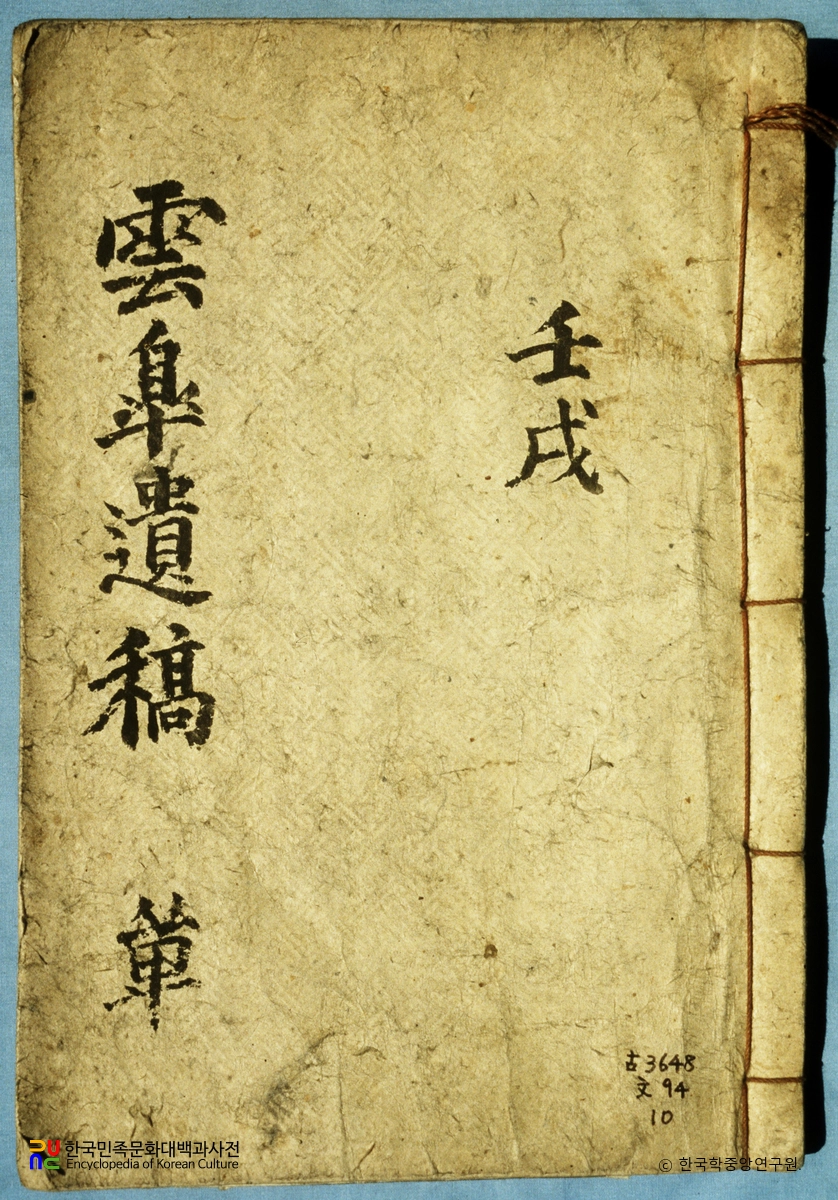 壬戌
雲皐遺稿 單
古3648
文94
10
한국민족문화대백과사전
Encyclopedia of Korean Culture
© 한국학중앙연구원